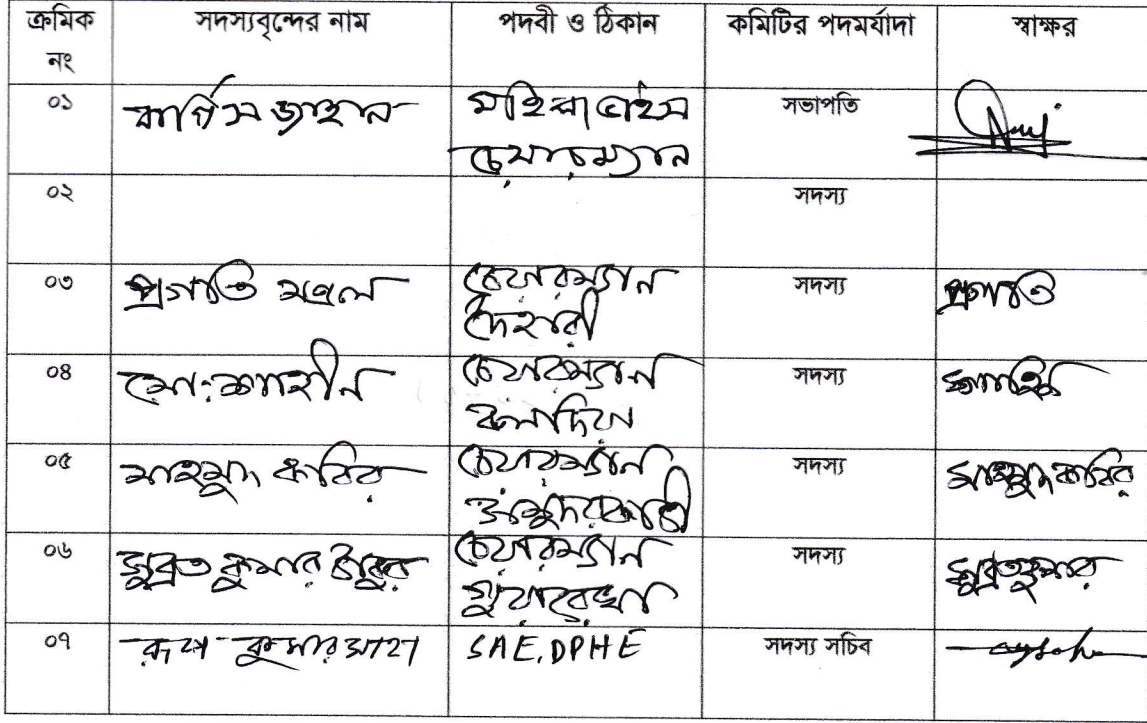 ক্রমিক নং সদস্যবৃন্দের নাম পদবী ও ঠিকান কমিটির পদমর্যাদা স্বাক্ষর
০১ নার্গিস জাহান মহিলা ভাইস চেয়ারম্যান সভাপতি
০২ সদস্য
০৩ প্রগতি মন্ডল চেয়ারম্যান দৈহারী সদস্য প্রগতি
০৪ মো: শাহীন চেয়ারম্যান বলদিয়া সদস্য শাহীন
০৫ মাহমুদ কবির চেয়ারম্যান সমুদয়কাঠী সদস্য মাহমুদ কবির
০৬ সুব্রত কুমার ঠাকুর চেয়ারম্যান গুয়ারেখা সদস্য সুব্রত কুমার
০৭ কুমার সাহা SAE, DPHE সদস্য সচিব